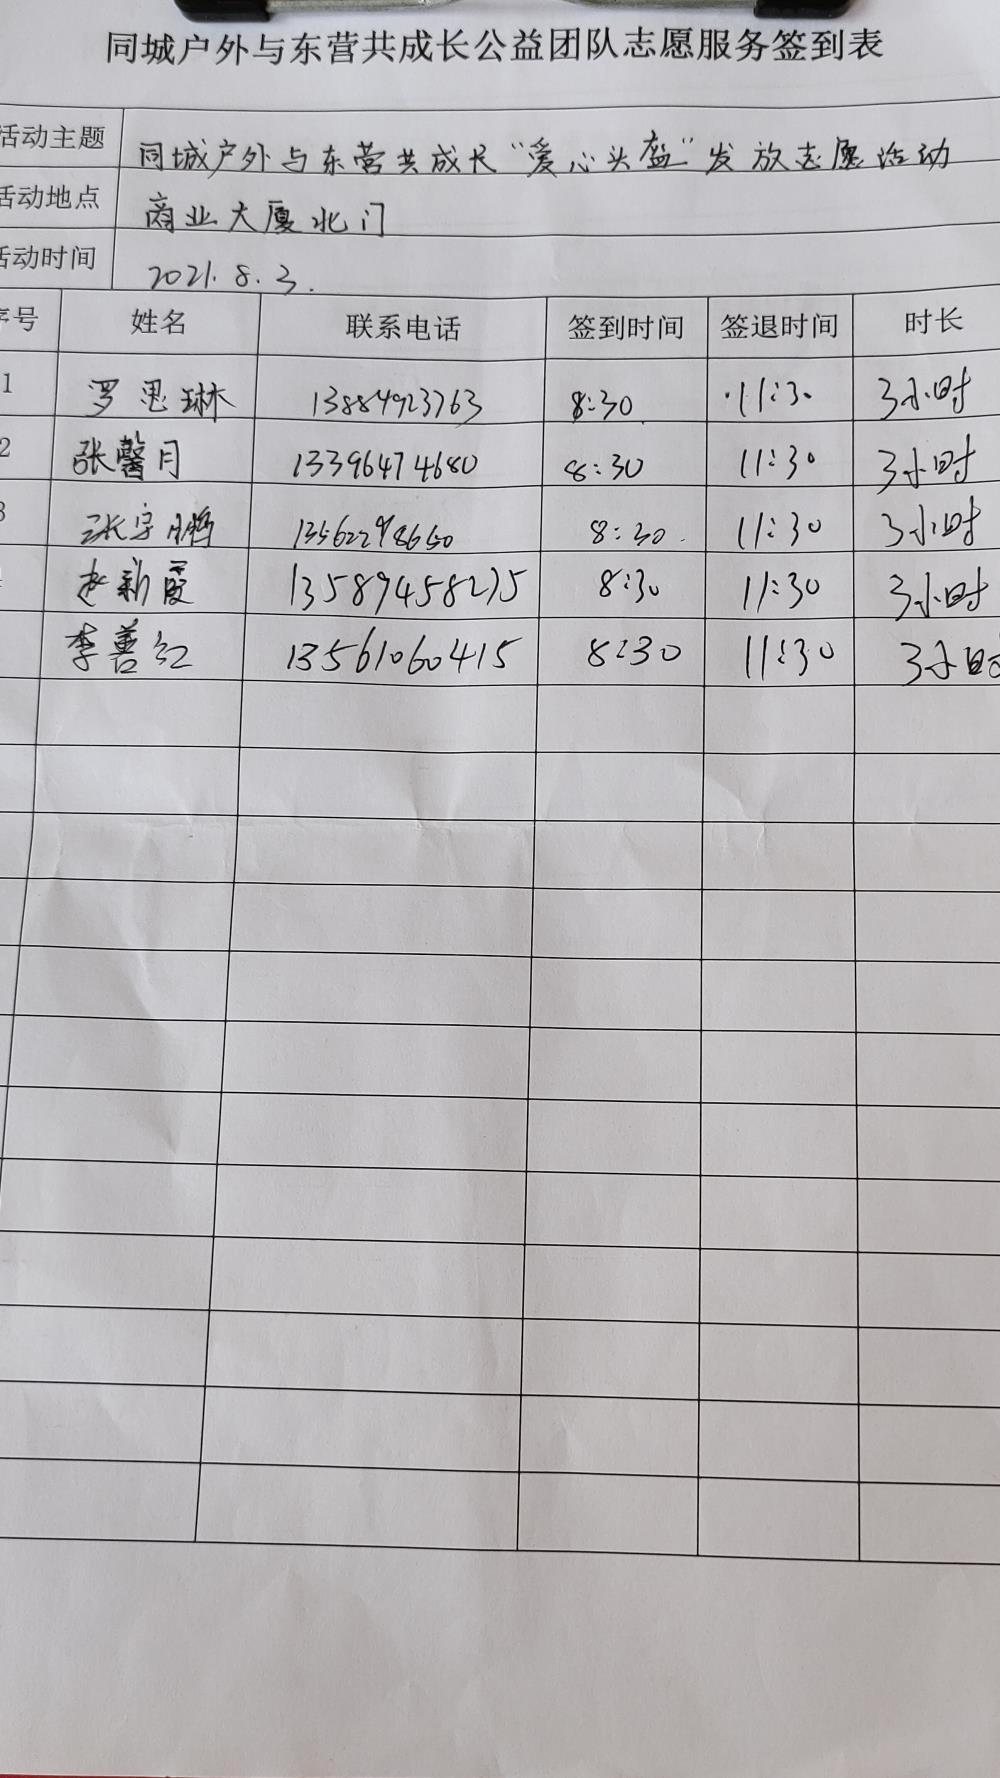 同城户外与东营共成长公益团队志愿服务签到表
活动主题 同城户外与东营共成长“爱心头盔”发放志愿活动
活动地点 商业大厦北门
活动时间 2021.8.3.
序号 姓名 联系电话 签到时间 签退时间 时长
1 罗思琳 13884923763 8:30 11:30 3小时
2 张馨月 13396474680 8:30 11:30 3小时
3 张宇鹏 13562298650 8:30 11:30 3小时
赵新霞 13589458275 8:30 11:30 3小时
李善红 13561060415 8:30 11:30 3小时